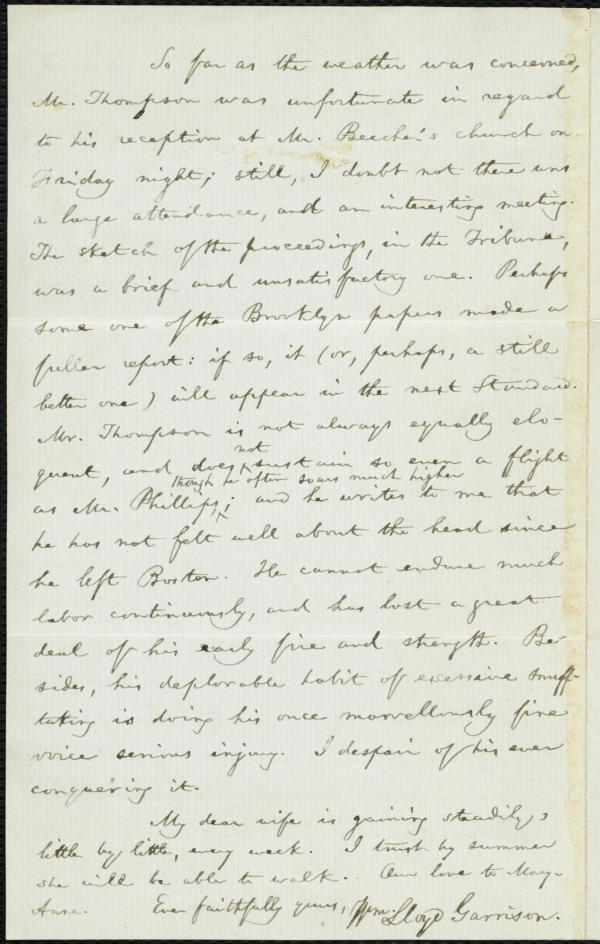 So far as the weather was concerned,
Mr. Thompson was unfortunate in regard
to his reception at Mr. Beecher's church on
Friday night; still, I doubt not there was
a large attendance, and an interesting meeting.
The sketch of the proceedings, in the Tribune,
was a brief and unsatisfactory one. Perhaps
some one of the Brooklyn papers made a
fuller report: if so, it (or, perhaps, a still
better one) will appear in the next Standard.
Mr. Thompson is not always equally elo-
not
quent, and does sustain so even a flight
though he often soars much higher
as Mr. Phillips,; and he writes to me that
he has not felt well about the head since
he left Boston. He cannot endure much
labor continuously, and has lost a great
deal of his early fire and strength. Be-
sides, his deplorable habit of excessive snuff-
taking is doing his once marvellously fine
voice serious injury. I despair of his ever
conquering it.
My dear wife is gaining steadily,
little by little, every week. I trust by summer
she will be able to walk. Our love to Mary-
Anne. Ever faithfully yours, Wm. Lloyd Garrison.